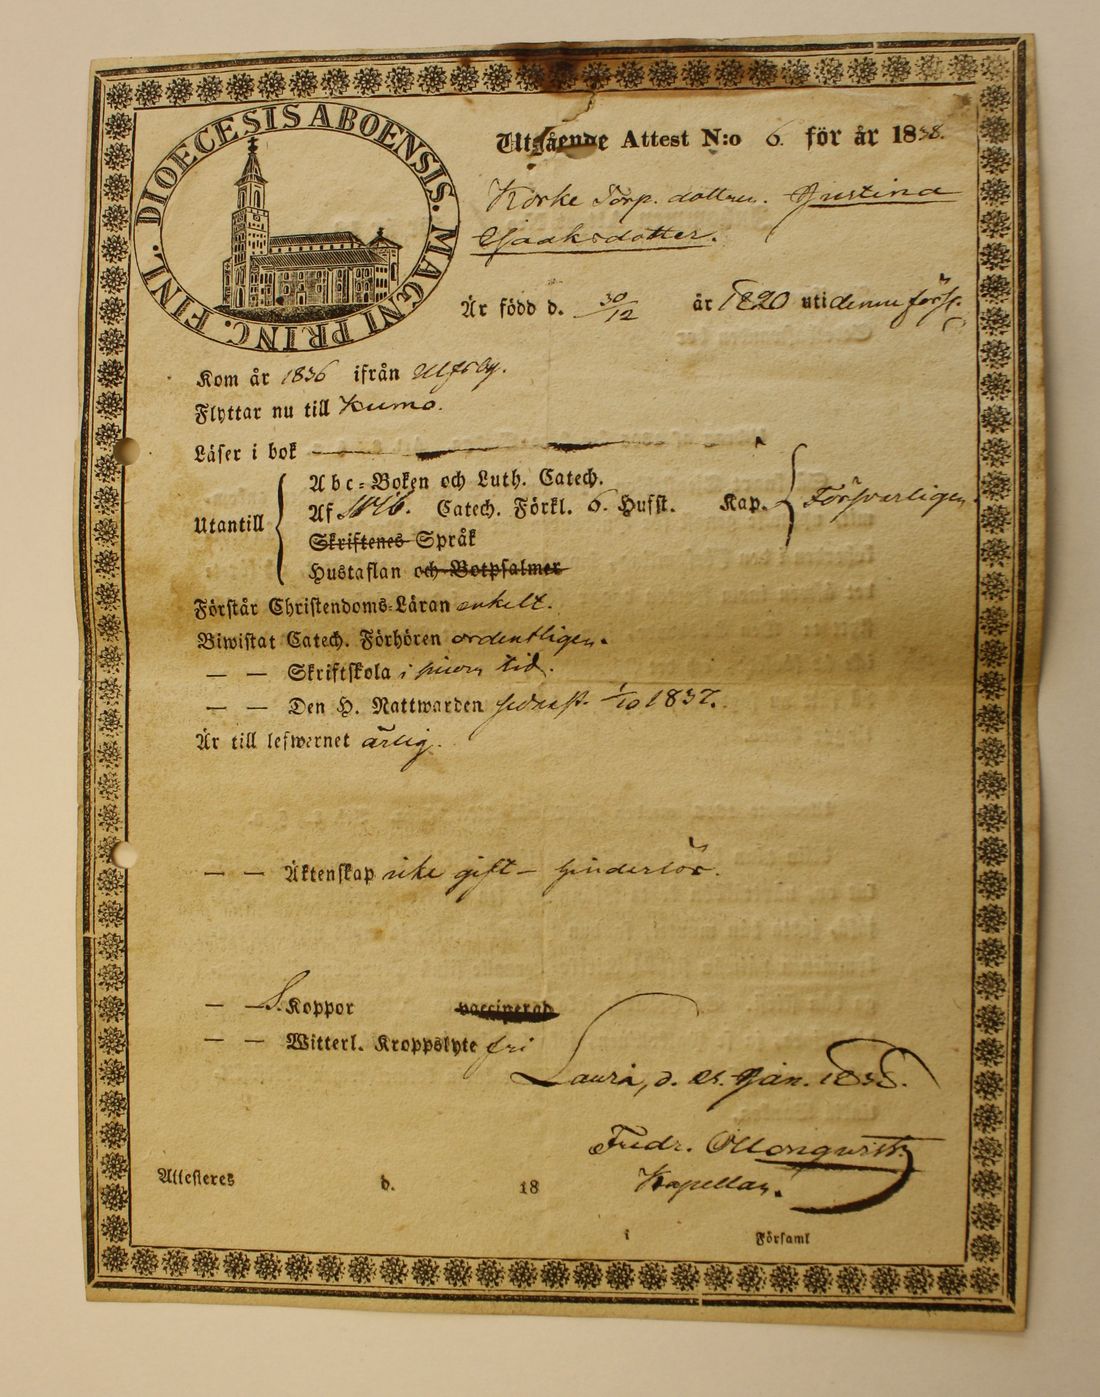 DIOECESIS ABOENSIS. MAGNI PRINC. FINL.
Utgående Attest N:o 6. för år 1838.
Körke Torp. dottren. Justina
Isaaksdotter.
Är född d. 30/12 år 1820 uti denna förs.
Kom år 1836 ifrån Ulfsby.
Flyttar nu till Kumo.
Läser i bok
Utantill
Abc-Boken och Luth. Catech.
Af Catech. Förkl. 6. Husst. Kap. Försvarligen.
Skriftenes Språk
Hustaflan och Botpsalmer
Förstår Christendoms-Läran enkelt.
Biwistat Catech. Förhören ordentligen.
— — Skriftskola i sinom tid.
— — Den H. Nattwarden sednast 1/10 1837.
Är till lefwernet ärlig.
— — Äktenskap icke gift – hinderlös.
— — Koppor vaccinerad
— — Witterl. Kroppslyte fri
Lauri, d. Jan. 1838.
Fredr. Kapellan.
Attesteres d. 18
i Församl